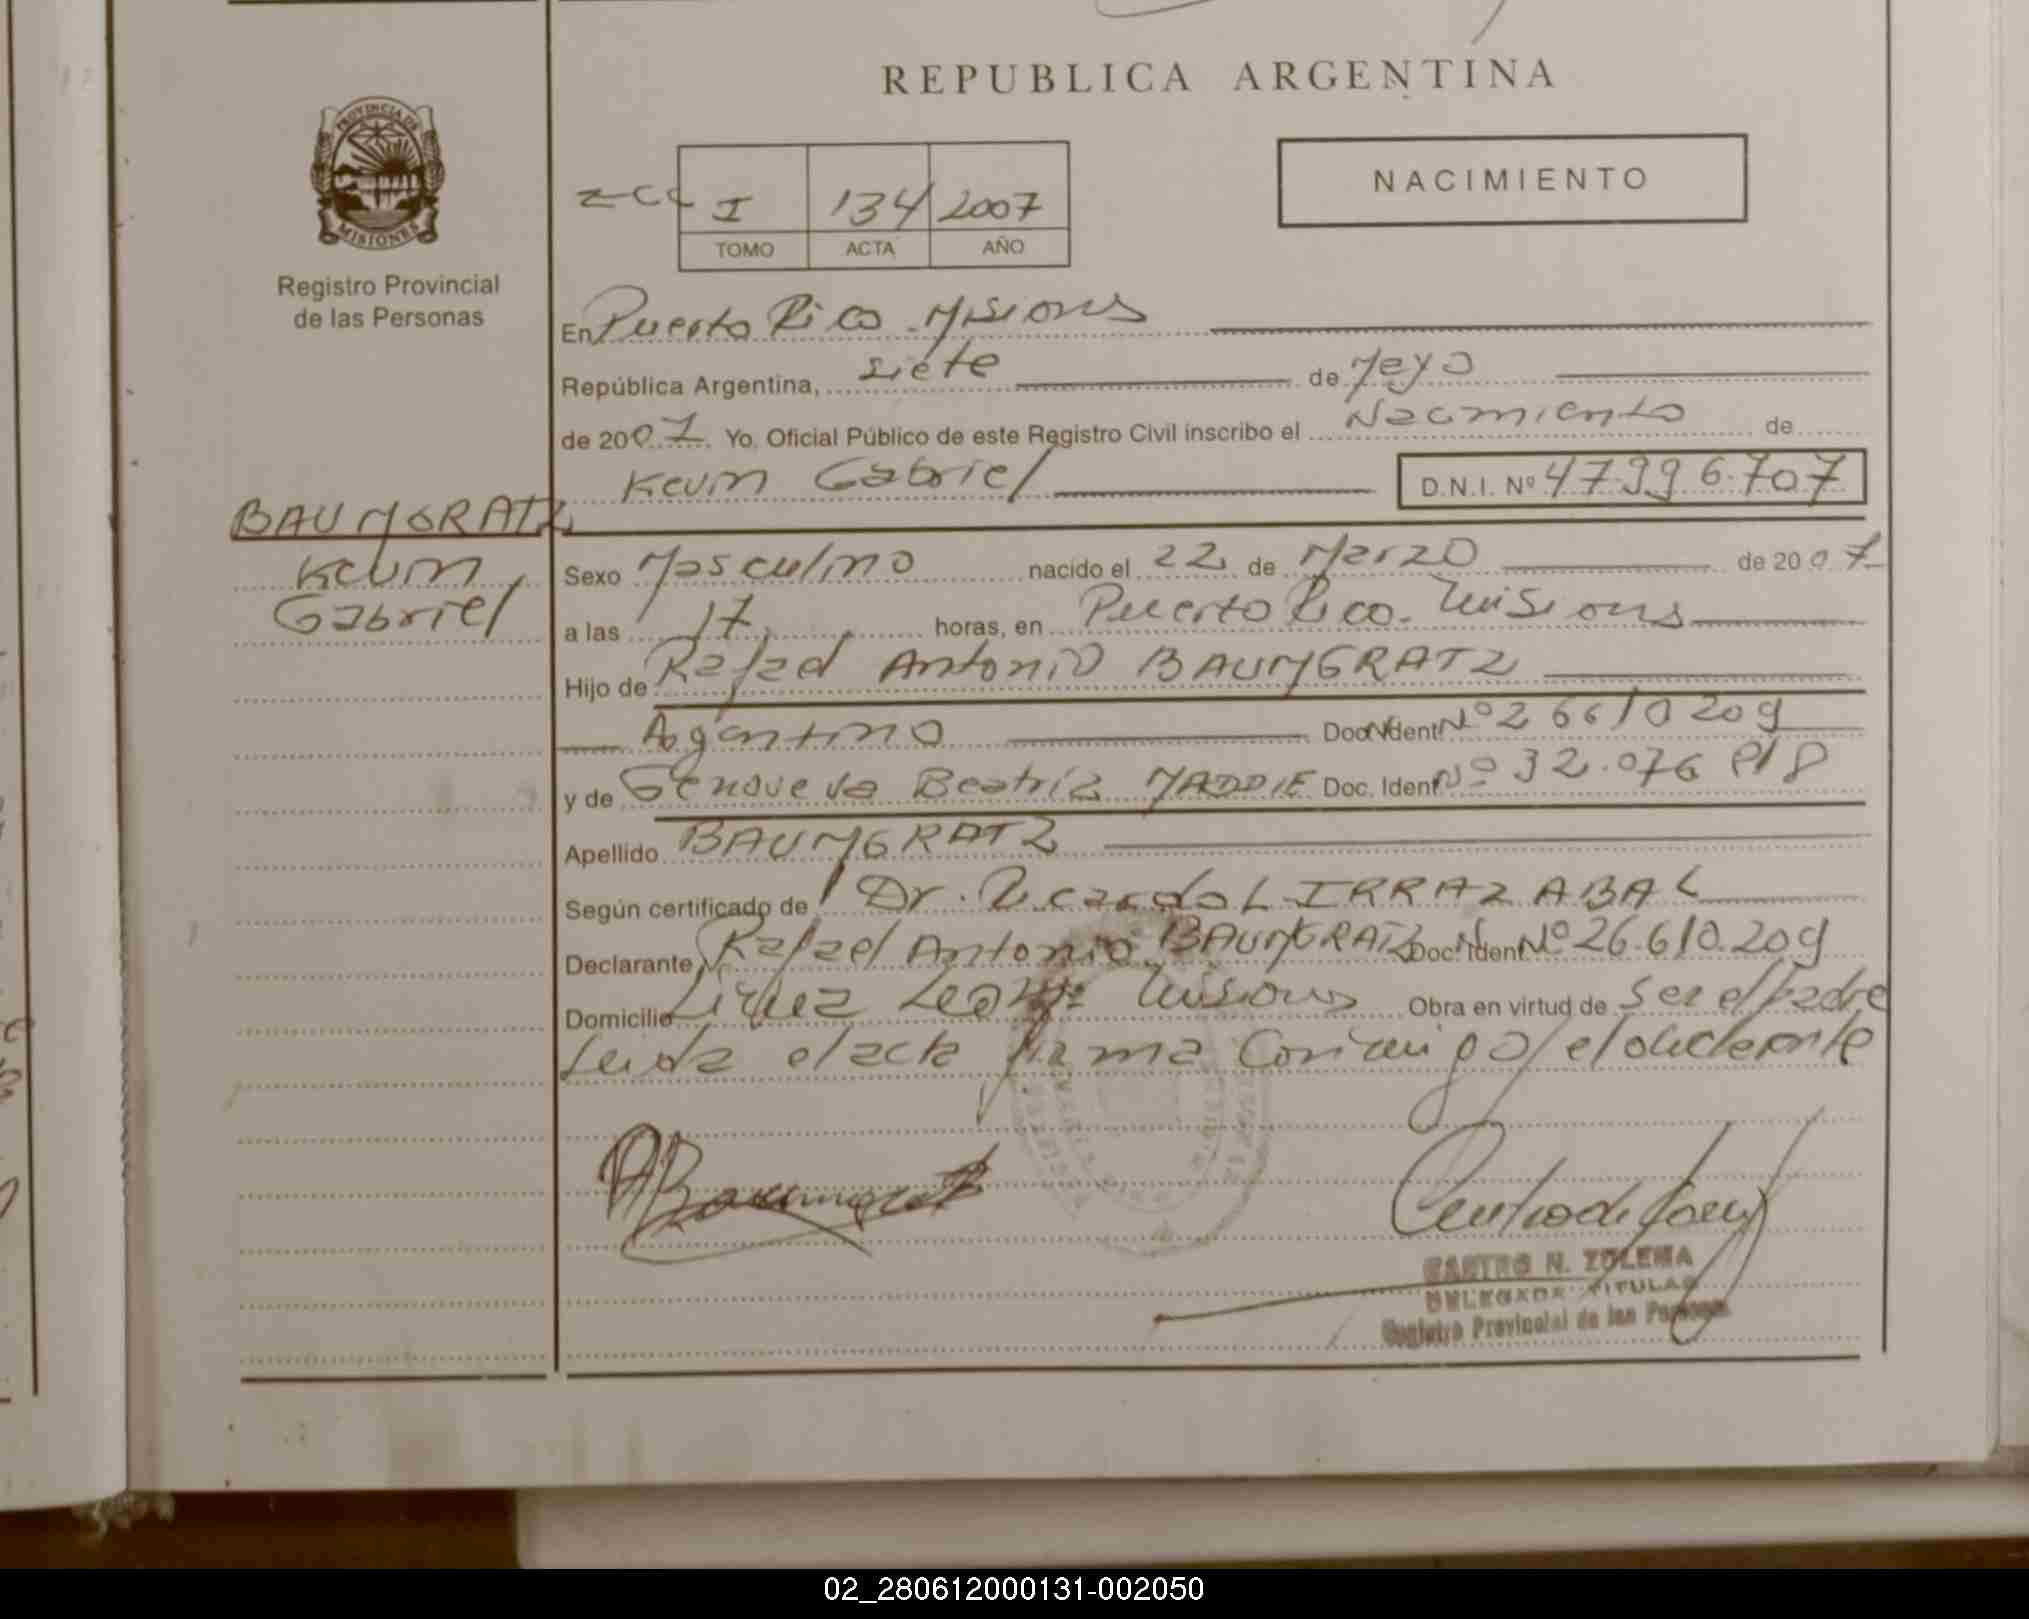 REPUBLICA ARGENTINA
PROVINCIA DE
MISIONES
Registro Provincial
de las Personas
NACIMIENTO
I 134 2007
TOMO ACTA AÑO
En Puerto Rico. Misiones
República Argentina, siete de Mayo
de 2007. Yo, Oficial Público de este Registro Civil inscribo el Nacimiento de
Kevin Gabriel D.N.I. Nº 47.996.707
BAUMGRATZ
Kevin
Gabriel
Sexo Masculino nacido el 22 de Marzo de 2007
a las 17 horas, en Puerto Rico. Misiones
Hijo de Rafael Antonio BAUMGRATZ
Argentino Doc. Ident. Nº 26610209
y de Genoveva Beatriz MADDIE Doc. Ident. Nº 32.076 818
Apellido BAUMGRATZ
Según certificado de Dr. Ricardo L IRRAZABAL
Declarante Rafael Antonio BAUMGRATZ Doc. Ident. Nº 26.610.209
Domicilio Misiones Obra en virtud de ser el padre
Leida el acta firma conmigo el declarante
CASTRO N. ZULEMA
DELEGADA TITULAR
Registro Provincial de las Personas
02_280612000131-002050